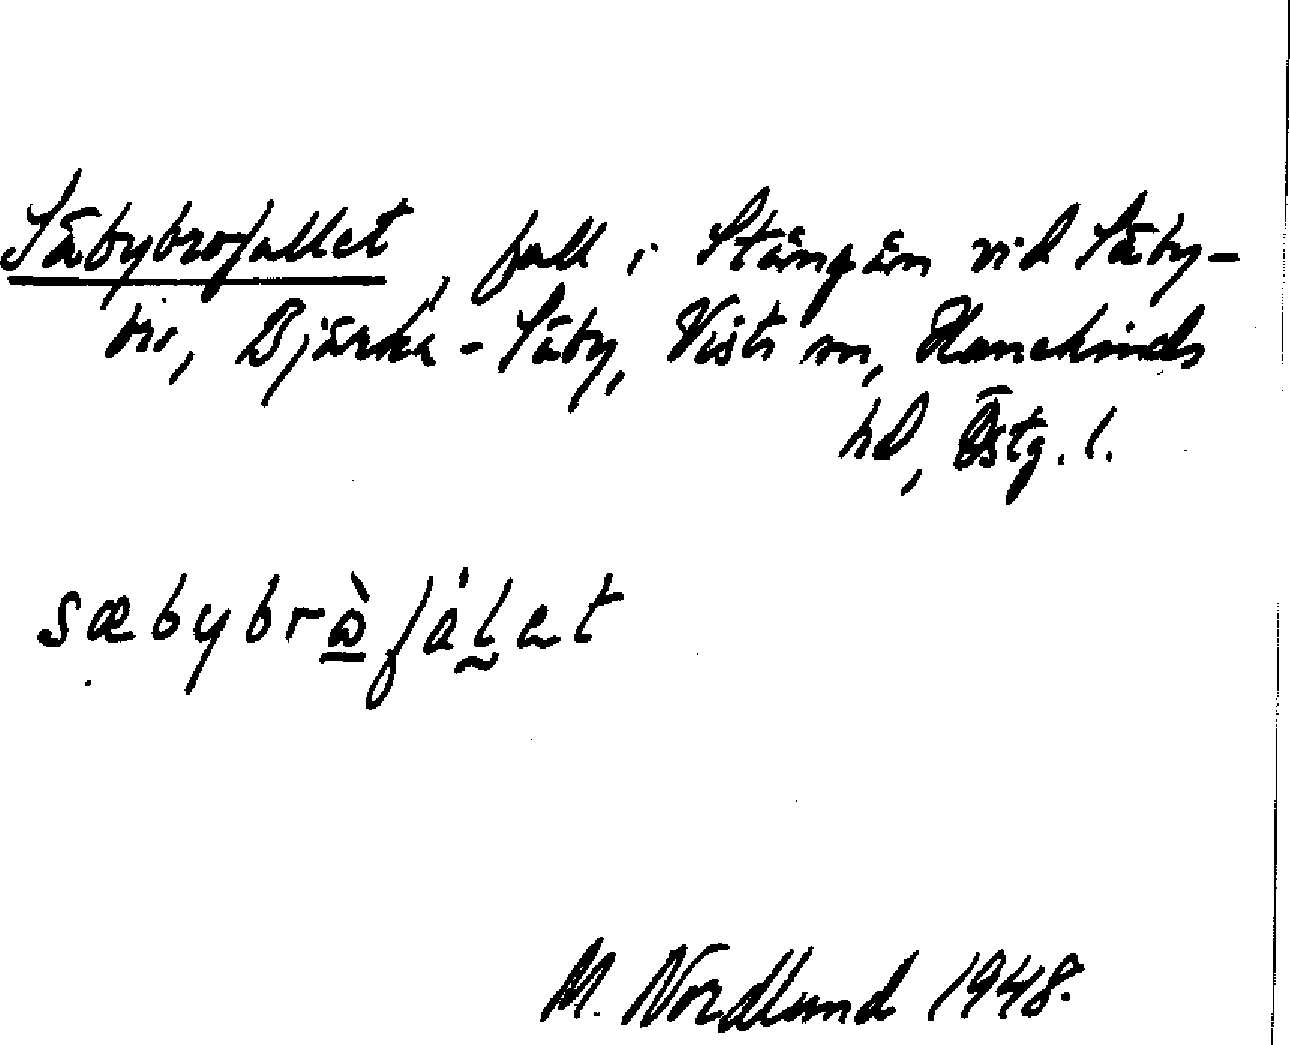 Säbybrofallet, fall i Stångån vid Säby-
bro, Bjärka-Säby, Vists sn, Hanekinds
hd, Östg. l.
sæbybrὼfál̰et
M. Nordlund 1948.